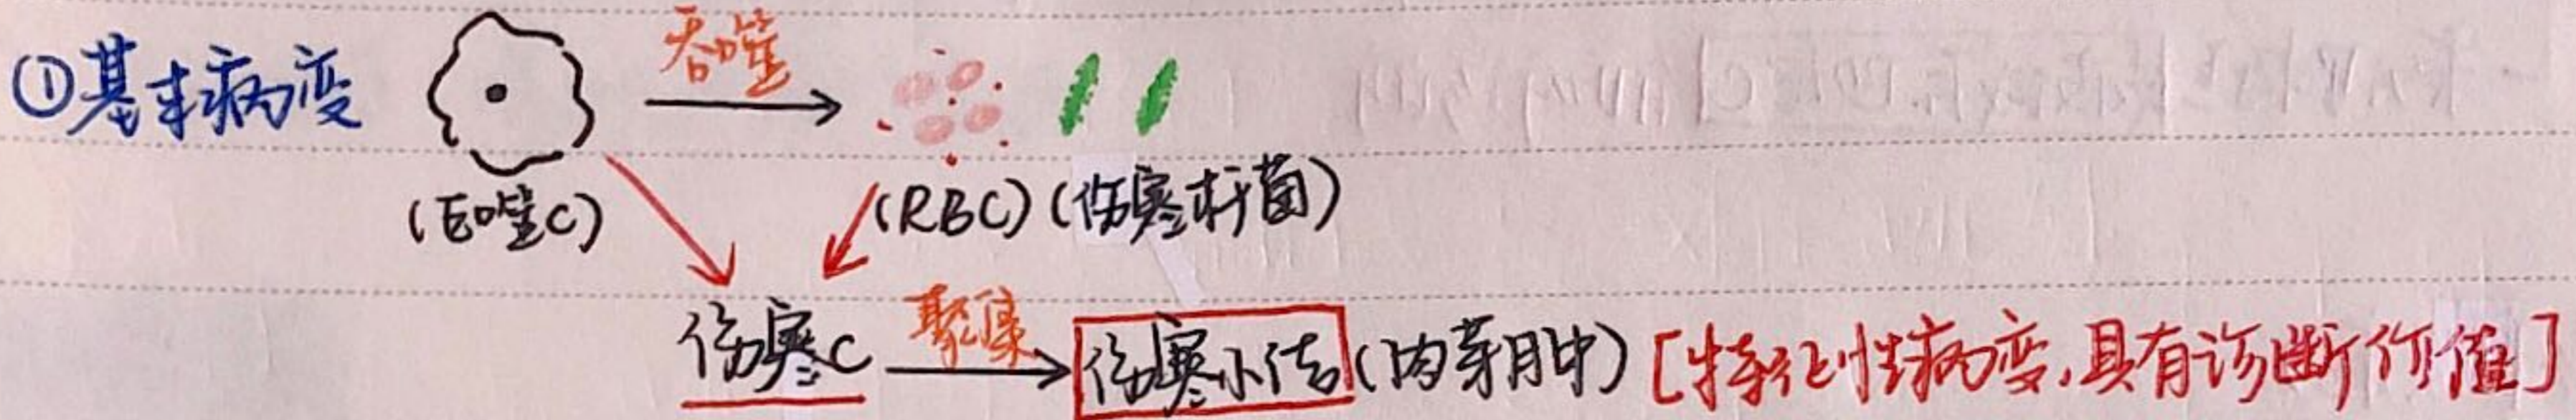 ①基本病变 吞噬
(巨噬C) (RBC) (伤寒杆菌)
伤寒C 聚集 伤寒小结(肉芽肿) [特征性病变,具有诊断价值]